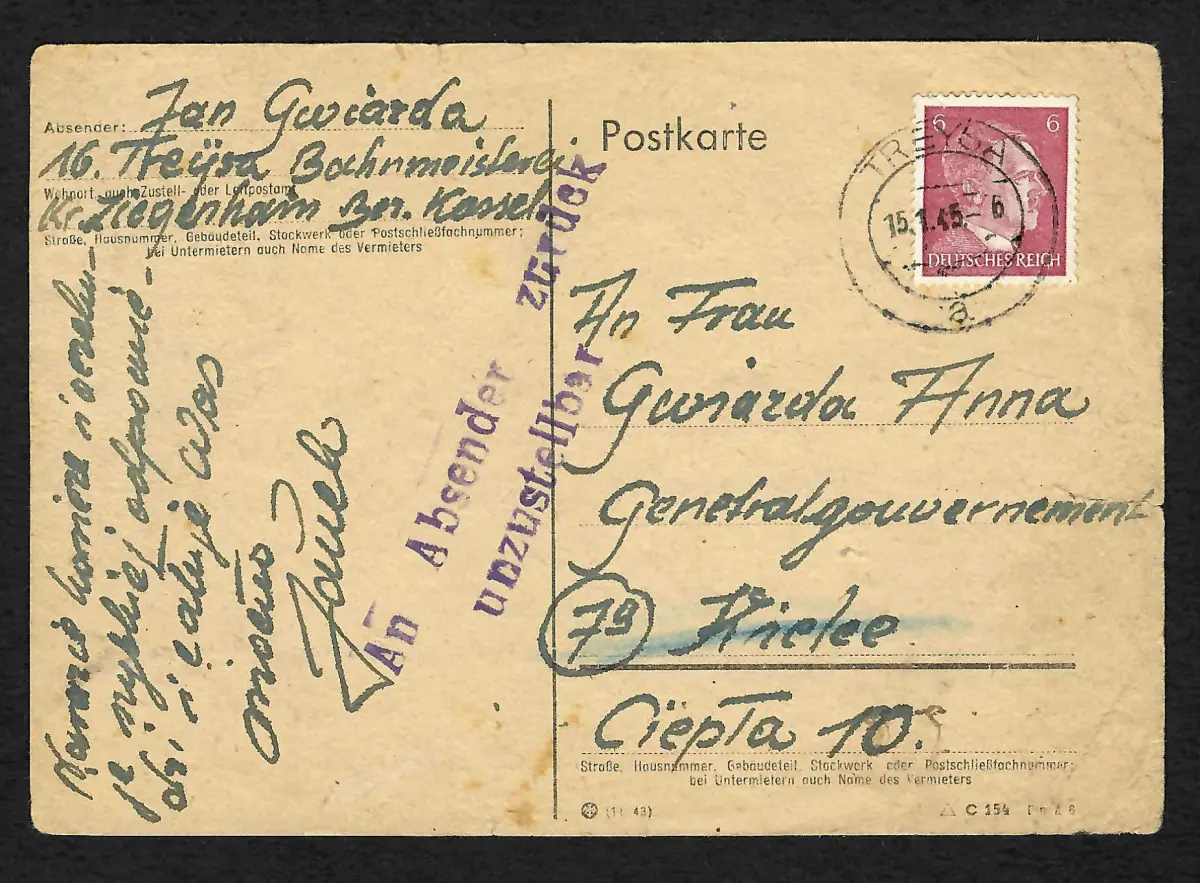 Absender: Jan Gwiarda
16. Treysa Bahnmeisterei
Wohnort, auch Zustell- oder Leitpostamt
Kr. Ziegenhain Bez. Kassel
Straße, Hausnummer, Gebäudeteil, Stockwerk oder Postschließfachnummer;
bei Untermietern auch Name des Vermieters
i
odpowie-
dzi i całuje Was
Janek
An Absender zurück
unzustellbar
Postkarte
6 6
DEUTSCHES REICH
TREYSA
15.1.45.- 6
a
An Frau
Gwiarda Anna
Generalgouvernement
7a Kielce
Ciepła 10.
Straße, Hausnummer, Gebäudeteil, Stockwerk oder Postschließfachnummer;
bei Untermietern auch Name des Vermieters
C 154